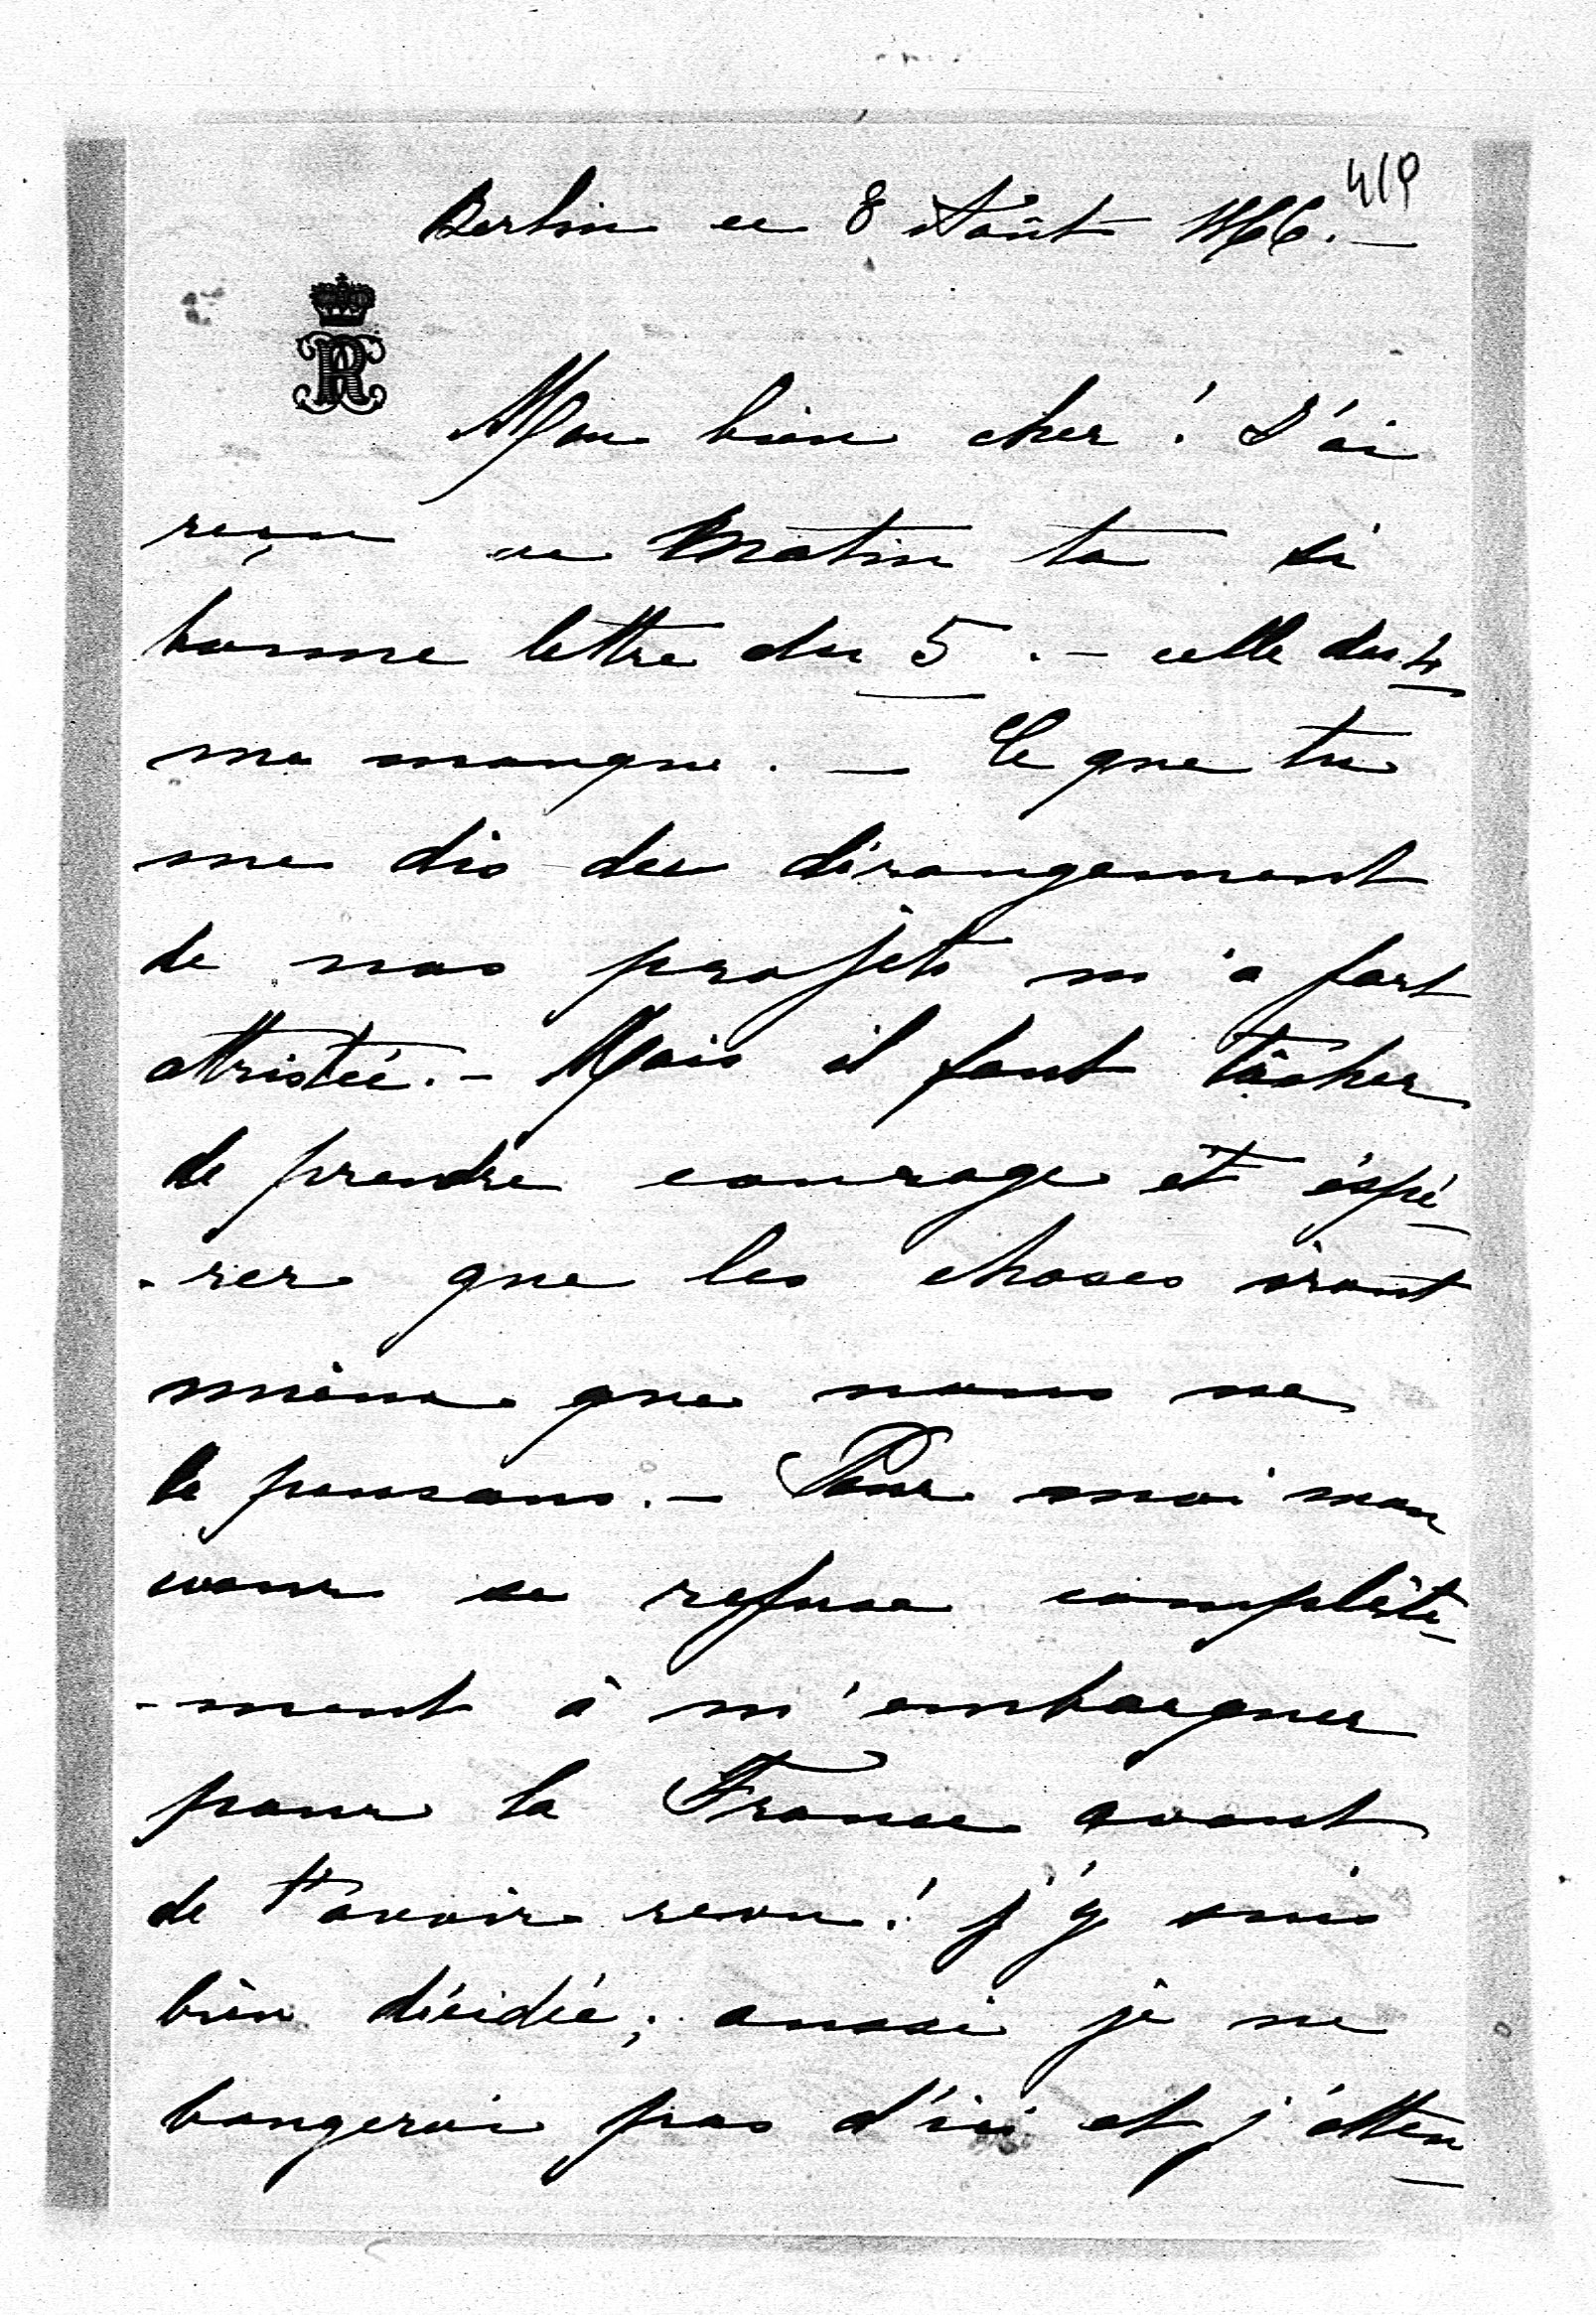 419
Berlin ce 8 Août 1866. —
R
Mon bien cher! J'ai
reçu ce Matin ta si
bonne lettre du 5. — celle du 4
me manque. — Ce que tu
me dis du dérangement
de nos projets m'a fort
attristée. — Mais il faut tâcher
de prendre courage et éspé-
-rer que les choses iront
mieux que nous ne
le pensons. — Pour moi mon
coeur se refuse complète-
-ment à m'embarquer
pour la France avant
de t'avoir revu! j'y suis
bien décidée; aussi je ne
bougerai pas d'ici et j'atten-